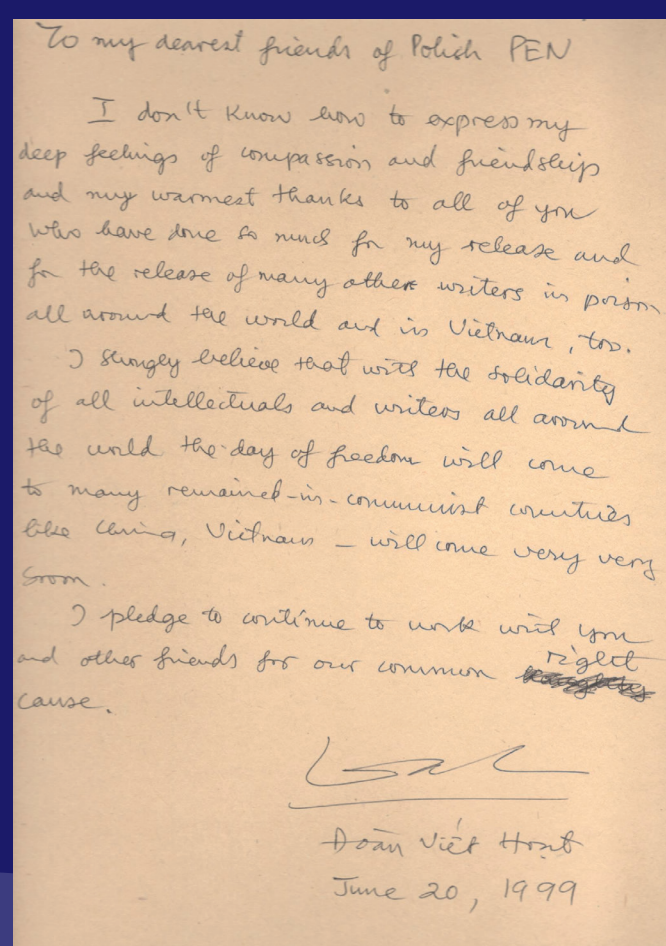 To my dearest friends of Polish PEN
I don't know how to express my
deep feelings of compassion and friendship
and my warmest thanks to all of you
who have done so much for my release and
for the release of many other writers in poison
all around the world and in Vietnam, too.
I strongly believe that with the solidarity
of all intellectuals and writers all around
the world the day of freedom will come
to many remained-in-communist countries
like China, Vietnam – will come very very
soon.
I pledge to continue to work with you
and other friends for our common right
cause.
Đoàn Viết Hoạt
June 20, 1999